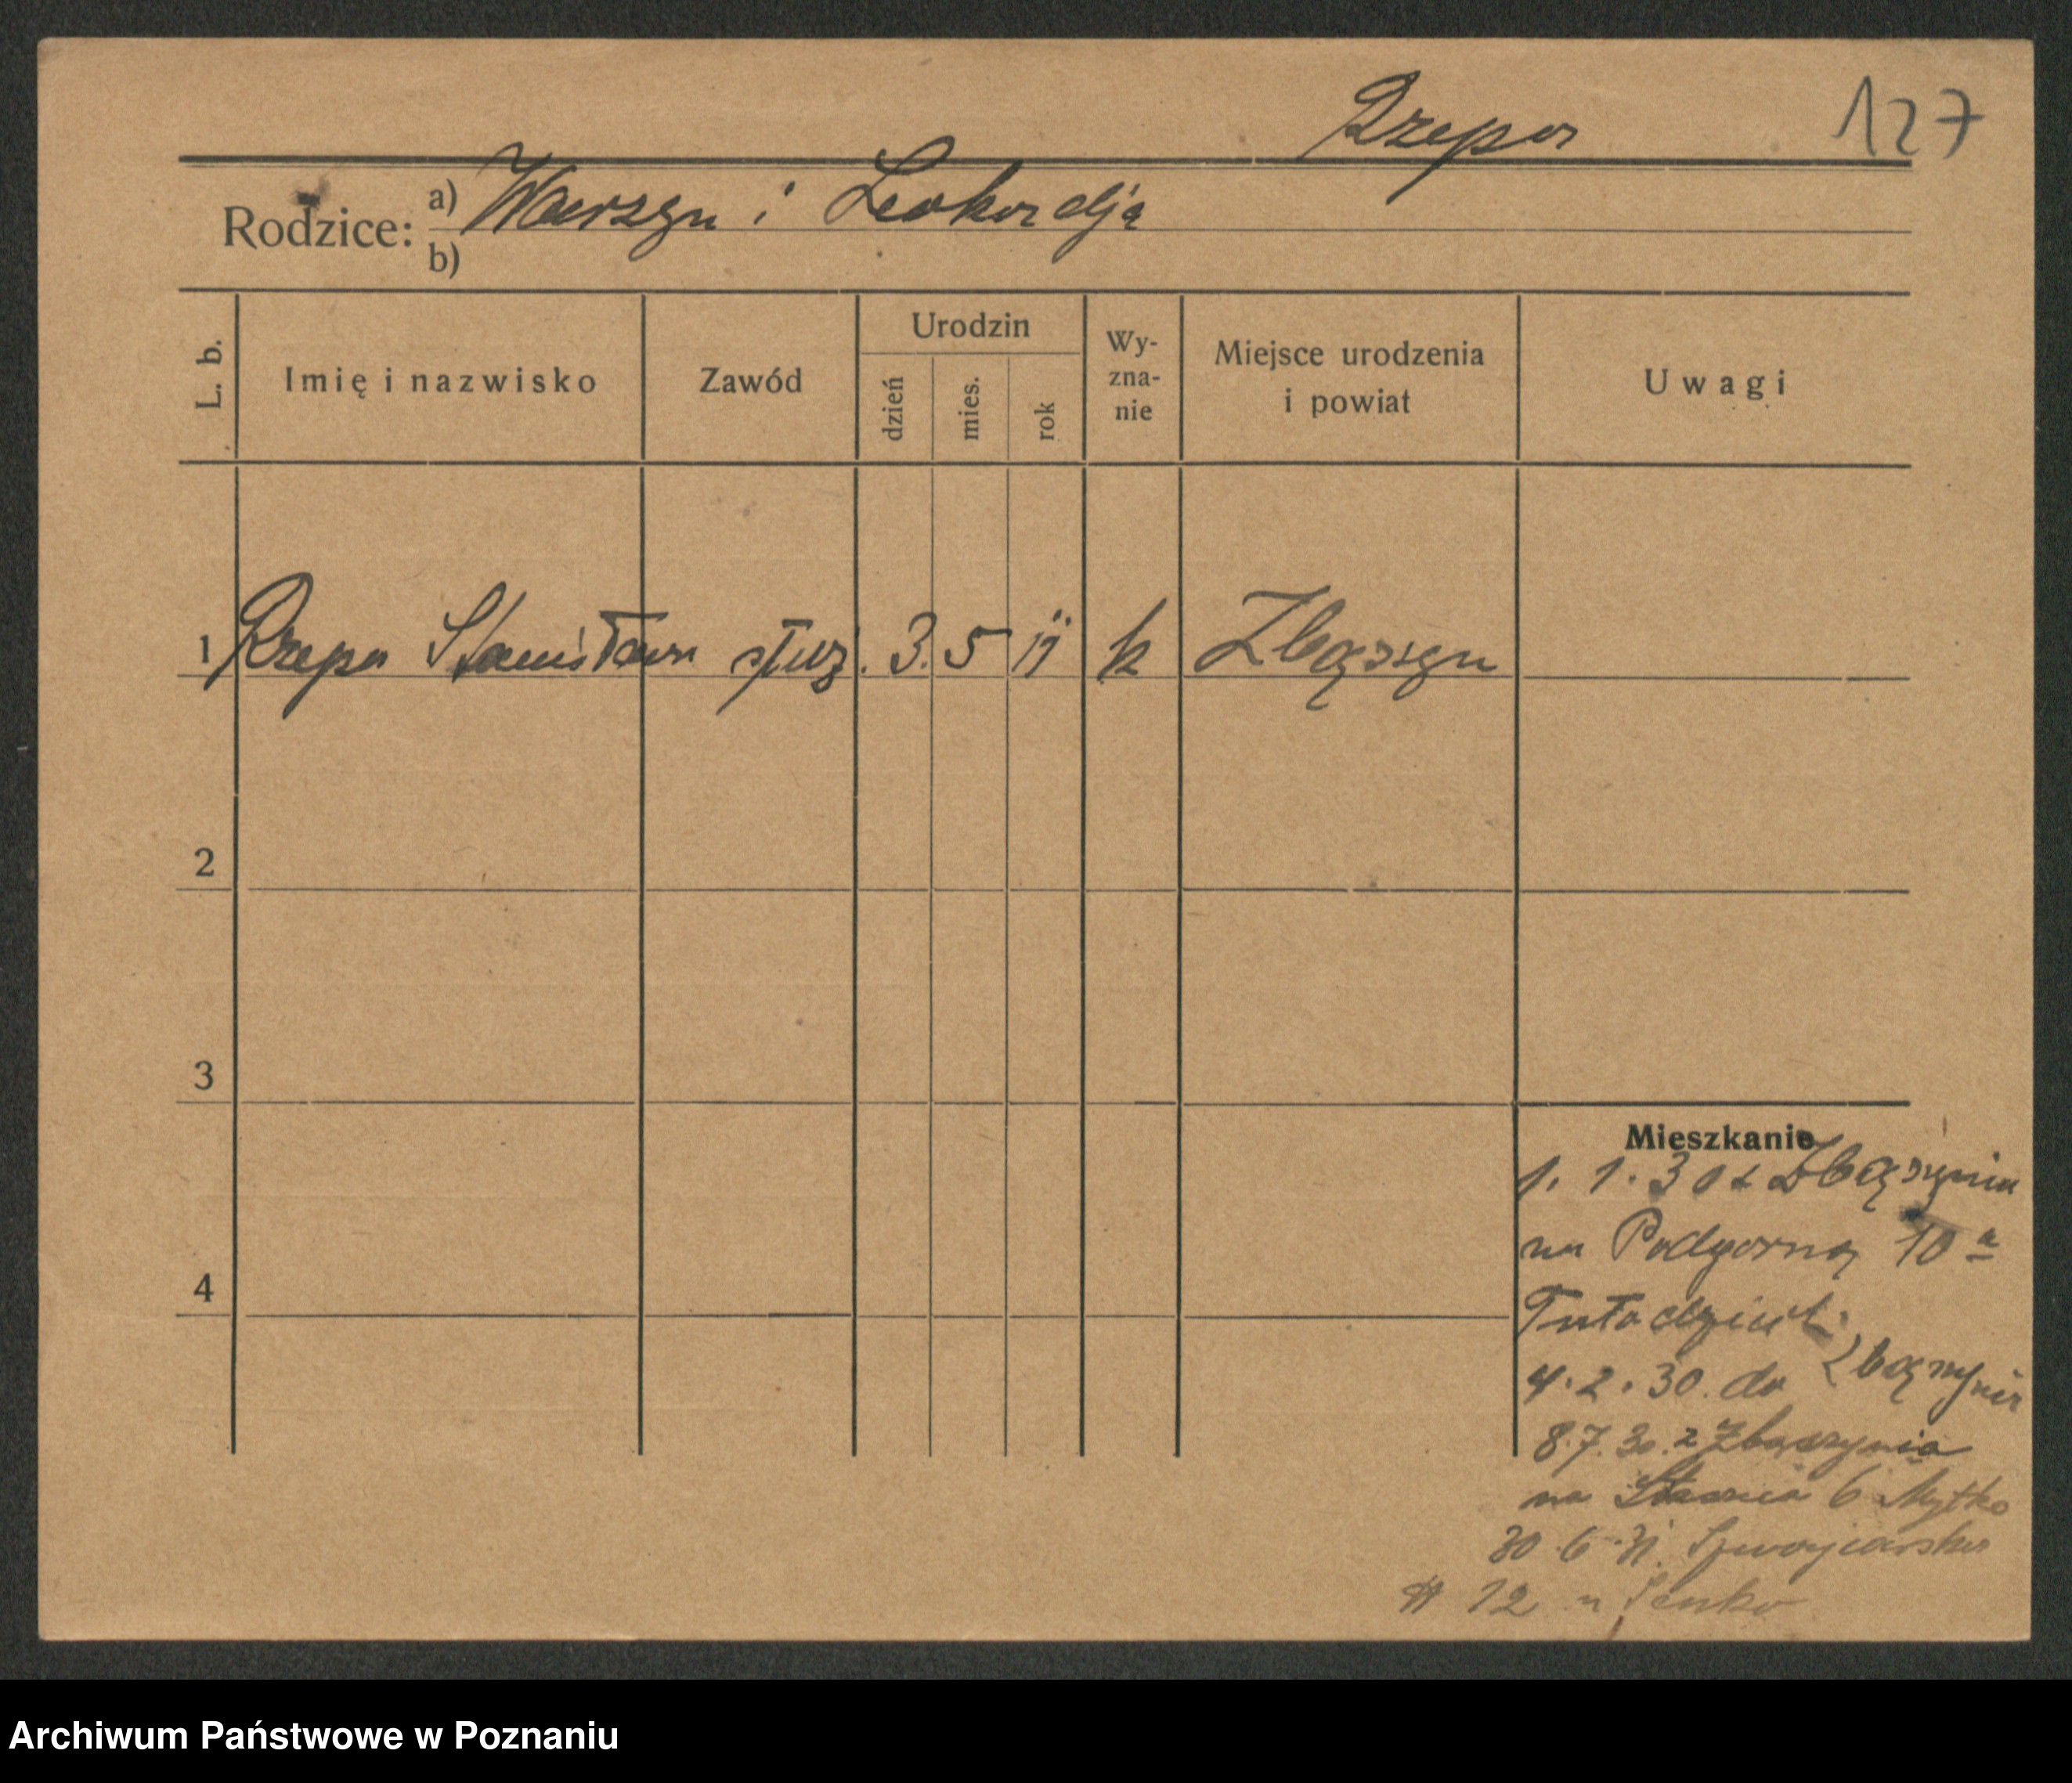 Rzepa 127
Rodzice: a) Wawrzyn i Leokadja
b)
L. b. Imię i nazwisko Zawód Urodzin dzień mies. rok Wy-zna-nie Miejsce urodzenia i powiat Uwagi
1 Rzepa Stanisław służ. 3. 5 11 k Zbąszyń
2
3
4
Mieszkanie
1. 1. 30 z Zbąszynia
na Podgorną 10 a
4. 2. 30. do Zbąszynia
8. 7. 30. z Zbąszynia
na 6
30. 6. 31.
12 u
Archiwum Państwowe w Poznaniu